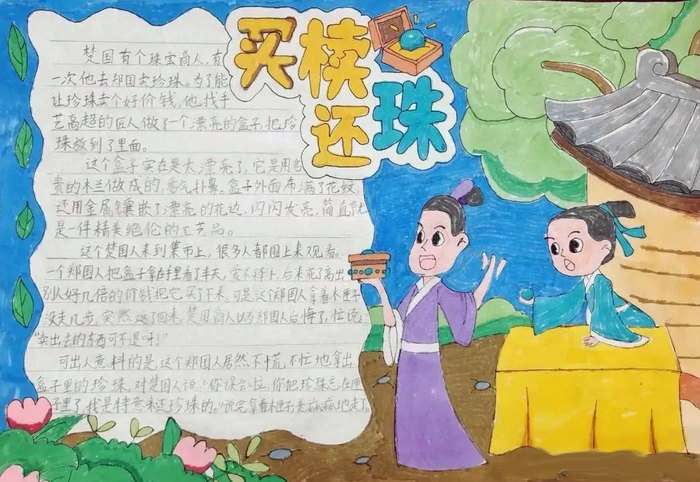 买椟还珠
楚国有个珠宝商人,有
一次他去郑国卖珍珠。为了能
让珍珠卖个好价钱,他找手
艺高超的匠人做了一个漂亮的盒子,把珍
珠放到了里面。
这个盒子实在是太漂亮了,它是用名
贵的木兰做成的,香气扑鼻,盒子外面布满了花纹,
还用金属镶嵌了漂亮的花边,闪闪发亮,简直就
是一件精美绝伦的工艺品。
这个楚国人来到集市上,很多人都围上来观看。
一个郑国人把盒子拿在手里看了半天,爱不释手,后来
别人好几倍的价钱把它买下来。可是这个郑国人拿着
没走几步,突然 回来,楚国商人以为郑国人后悔了,忙说:
"卖出去的东西可不退呀!"
可出人意料的是,这个郑国人居然不慌不忙地拿出
盒子里的珍珠,对楚国人说:"你误会啦,你把珍珠忘在
里了,我是特意来还珍珠的。"说完拿着 地走了。